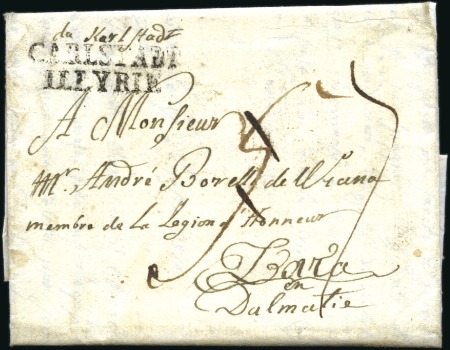 da Karlstadt
CARLSTADT
ILLYRIE
A Monsieur
Mr. André Borelli de Wrana
membre de La Legion d'Honneur
Zara
en
Dalmatie